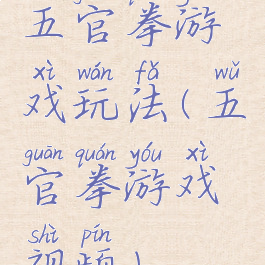 五官拳游
xì wán fǎ wǔ
戏玩法(五
guān quán yóu xì
官拳游戏
shì pín
视频)